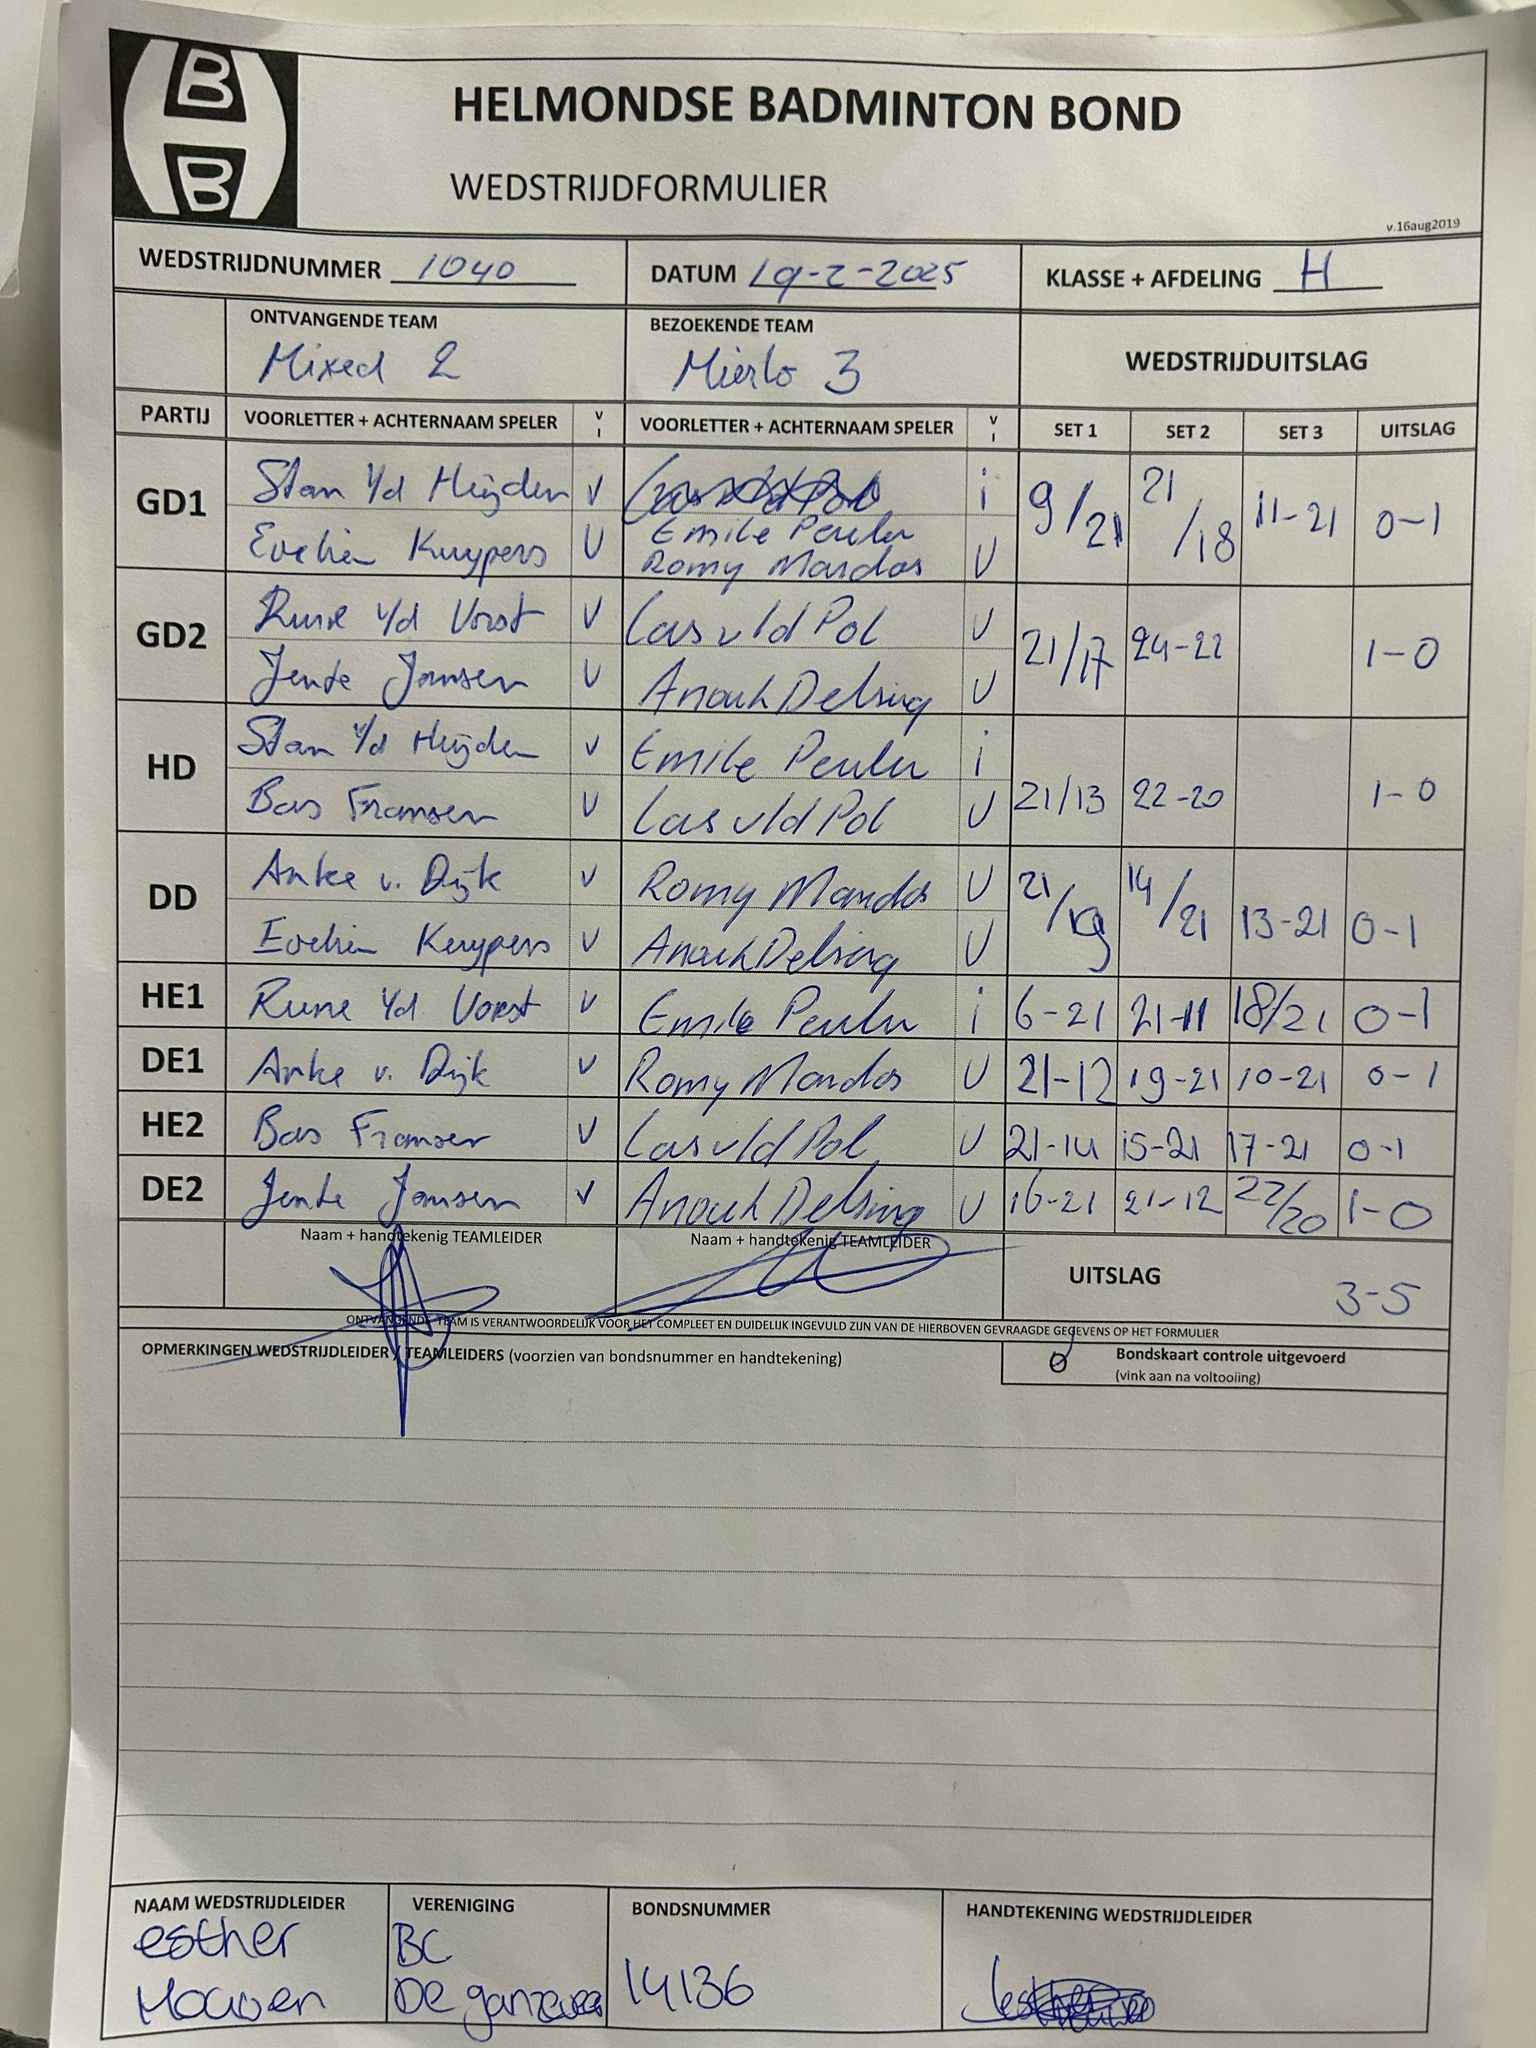 HELMONDSE BADMINTON BOND
WEDSTRIJDFORMULIER
v.16aug2019
WEDSTRIJDNUMMER 1040 DATUM 19-2-2025 KLASSE + AFDELING H
ONTVANGENDE TEAM BEZOEKENDE TEAM WEDSTRIJDUITSLAG
Mixed 2 Mierlo 3
PARTIJ VOORLETTER + ACHTERNAAM SPELER V I VOORLETTER + ACHTERNAAM SPELER V I SET 1 SET 2 SET 3 UITSLAG
GD1 Stan v/d Heijden V i 9/21 21/18 11-21 0-1
Emile
Evelien Kuypers V Romy Mandos V
GD2 Rune v/d Vorst V Cas v/d Pol V 21/17 24-22 1-0
Jente Jansen V Anouk Delsing V
HD Stan v/d Heijden V Emile i 21/13 22-20 1-0
Bas Fransen V Cas v/d Pol V
DD Anke v. Dijk V Romy Mandos V 21/19 14/21 13-21 0-1
Evelien Kuypers V Anouk Delsing V
HE1 Rune v/d Vorst V Emile i 6-21 21-11 18/21 0-1
DE1 Anke v. Dijk V Romy Mandos V 21-12 19-21 10-21 0-1
HE2 Bas Fransen V Cas v/d Pol V 21-14 15-21 17-21 0-1
DE2 Jente Jansen V Anouk Delsing V 16-21 21-12 22/20 1-0
Naam + handtekenig TEAMLEIDER Naam + handtekenig TEAMLEIDER
UITSLAG 3-5
ONTVANGENDE TEAM IS VERANTWOORDELIJK VOOR HET COMPLEET EN DUIDELIJK INGEVULD ZIJN VAN DE HIERBOVEN GEVRAAGDE GEGEVENS OP HET FORMULIER
OPMERKINGEN WEDSTRIJDLEIDER / TEAMLEIDERS (voorzien van bondsnummer en handtekening) Bondskaart controle uitgevoerd
(vink aan na voltooiing)
NAAM WEDSTRIJDLEIDER VERENIGING BONDSNUMMER HANDTEKENING WEDSTRIJDLEIDER
esther BC
De 14136